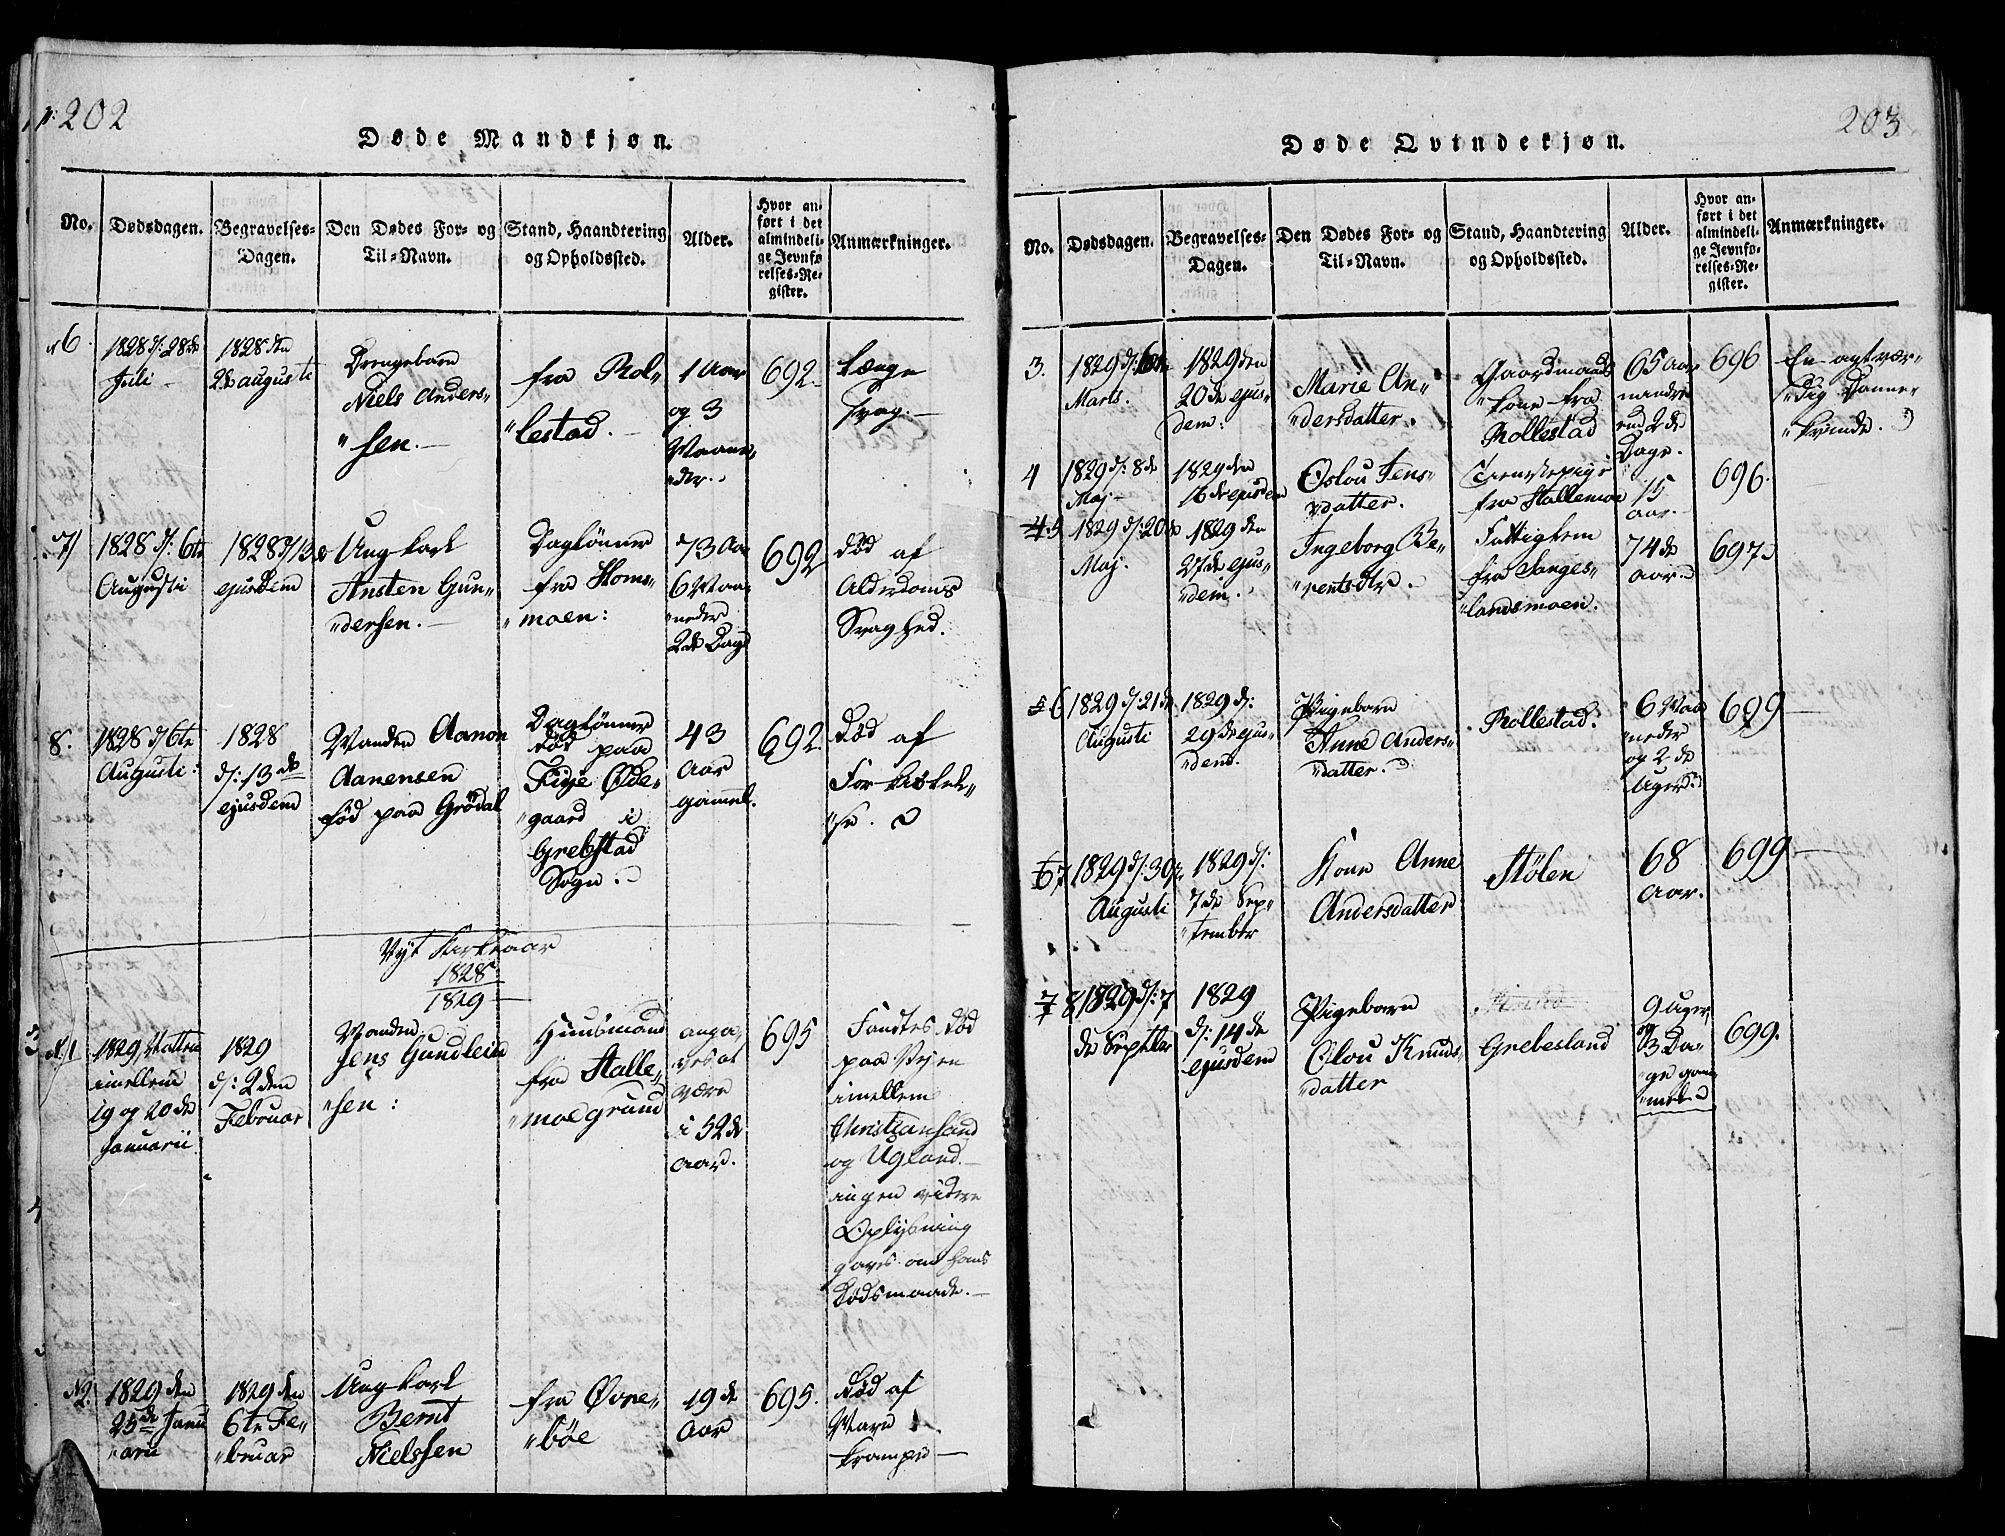 p: 202
Døde Mandkjøn.
No.
Dødsdagen.
Begravelses-
Dagen.
Den Dødes For- og
Til-Navn.
Stand, Haandtering
og Opholdssted.
Alder.
Hvor an-
ført i det
almindeli-
ge Jevnfø-
relses-Re-
gister.
Anmærkninger.
6.
1828 d: 28de
Juli
1828 den
2de augusti
Drengebarn
Niels Anders-
"sen.
fra Rol-
"lestad.
1 Aar
og 3
Maane-
"der.
692.
Længe
svag.
7
1828 d: 6te
Augusti
1828 d: 13de
ejusdem
Ung karl
Ansten Gun-
"dersen.
Daglønner
fra Homs-
"moen:
73 Aar
6 Maa-
"neder
2de Dage
692
død af
Alderdoms
Svaghed.
8.
1828 d 6te
Augusti:
1828
d: 13de
ejusdem
Manden Aanon
Aanensen
fød paa Grødal
Daglønner
død paa
Fige Øde-
"gaard i
Grebstad
Sogn.
43
Aar
gammel.
692
død af
For
"se.
Nyt Kirkeaar
1828
1829
N. 1
1829, Natten
imellem
19 og 20de
Januarii
1829
d: 2den
Februar
Manden
Jens Gundleid
"sen:
Huusmand
fra Stalle-
"moe grund
anga-
ves at
være
i 52de
aar.
695
Fandtes død
paa Vejen
imellem
Christiansand
og Ugland.
ingen videre
Oplysning
gaves om hans
Dødsmaade.
N2.
1829 den
25de Janu
"arii
1829 den
6te Fe-
"bruar
Ung karl
Bernt
Nielssen
fra Øvre-
"bøe
19de
Aar
695.
død af
krampe
203
Døde Qvindekjøn.
No.
Dødsdagen.
Begravelses-
Dagen.
Den Dødes For- og
Til-Navn.
Stand, Haandtering
og Opholdssted.
Alder.
Hvor an-
ført i det
almindeli-
ge Jevnfø-
relses-Re-
gister.
Anmærkninger.
3.
1829 d: 6te
Marts.
1829 den
20de ejus-
dem.
Marie An-
"dersdatter.
Gaardmands
"kone fra
Rollestad
65 Aar
2de
Dage.
696
En agtvær-
"dig Danne-
"kvinde.
4
1829 d: 8de
Maj
1829 den
16de ejusdem
Oslou Jens-
"datter.
Tienstepige
fra Stallemoe
15
aar.
696.
4.5
1829 d: 20de
Maj.
1829 den
27de ejus-
"dem.
Ingeborg Be-
"rentsdtr.
Fattiglem
fra Sanges-
"landsmoen.
74de
aar.
697.
5 6
1829 d: 21de
Augusti
1829 d:
29de ejus-
"dem.
Pigebarn
Anne Anders-
"datter.
Rollestad.
6 Maa
"neder
og 2de
Uger.
699
6 7
1829 d: 30te
Augusti
1829 d:
7de Sep-
"tember
Kone Anne
Andersdatter
Stølen
68
Aar.
699
7 8
1829 d: 7
de Septbr
1829
d: 14de
ejusdem
Pigebarn
Olou Knuds-
"datter
Grebesland
9 Uger
og
3 Da-
"ge gam
"mel.
699.